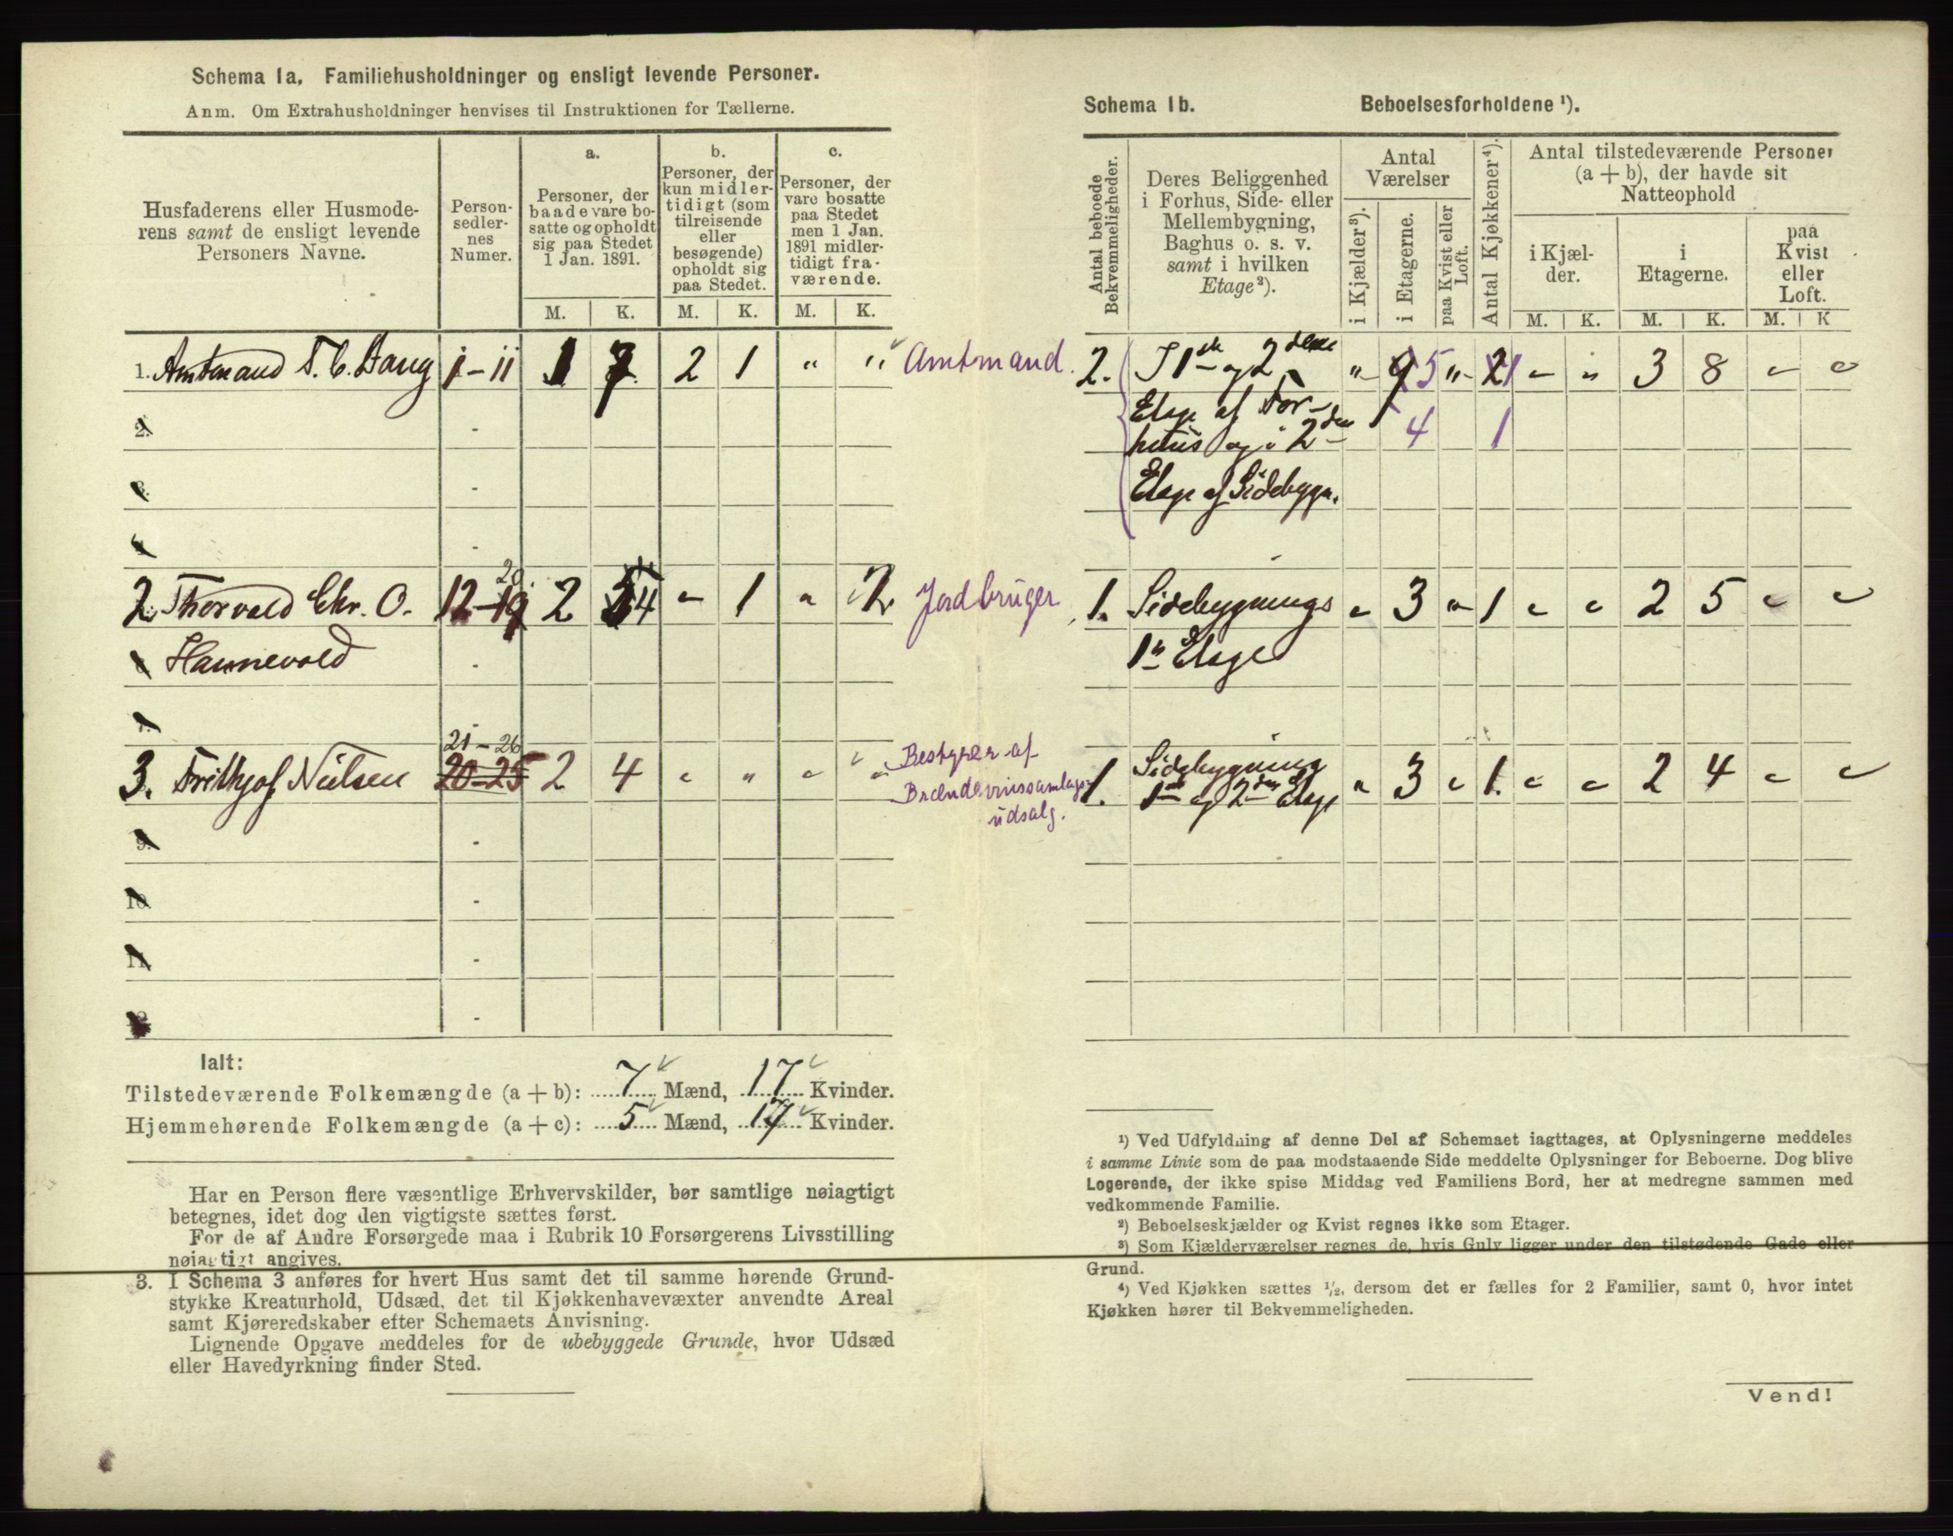 Schema 1a. Familiehusholdninger og ensligt levende Personer.
Anm. Om Extrahusholdninger henvises til Instruktionen for Tællerne.
Husfaderens eller Husmode-
rens samt de ensligt levende
Personers Navne.
Person-
sedler-
nes
Numer.
a.
Personer, der
baade vare bo-
satte og opholdt
sig paa Stedet
1 Jan. 1891.
b.
Personer, der
kun midler-
tidigt (som
tilreisende
eller
besøgende)
opholdt sig
paa Stedet.
c.
Personer, der
vare bosatte
paa Stedet
men 1 Jan.
1891 midler-
tidigt fra-
værende.
M. K. M. K. M. K.
1. Amtmand T. C. Bang 1-11 1 7 2 1 " " Amtmand.
2. -
3. -
4. -
2. Thorvald Chr. O. 12-19 20 2 4 " 1 " 1 Jordbruger
6 Hannevold -
7. -
21-26
3. Frithjof Nielsen 20-25 2 4 " " " " Bestyrer af
Brændevinssamlags-
udsalg.
9. -
10. -
11. -
12. -
Ialt:
Tilstedeværende Folkemængde (a + b): 7 Mænd, 17 Kvinder.
Hjemmehørende Folkemængde (a + c): 5 Mænd, 17 Kvinder.
Har en Person flere væsentlige Erhvervskilder, bør samtlige nøiagtigt
betegnes, idet dog den vigtigste sættes først.
For de af Andre Forsørgede maa i Rubrik 10 Forsørgerens Livsstilling
nøiagtigt angives.
3. I Schema 3 anføres for hvert Hus samt det til samme hørende Grund-
stykke Kreaturhold, Udsæd, det til Kjøkkenhavevæxter anvendte Areal
samt Kjøreredskaber efter Schemaets Anvisning.
Lignende Opgave meddeles for de ubebyggede Grunde, hvor Udsæd
eller Havedyrkning finder Sted.
Schema 1b. Beboelsesforholdene ¹).
Antal beboede
Bekvemmeligheder.
Deres Beliggenhed
i Forhus, Side- eller
Mellembygning,
Baghus o. s. v.
samt i hvilken
Etage²).
Antal
Værelser
i Kjælder³).
i Etagerne.
paa Kvist eller
Loft.
Antal Kjøkkener⁴).
Antal tilstedeværende Personer
(a + b), der havde sit
Natteophold
i Kjæl-
der.
i
Etagerne.
paa
Kvist
eller
Loft.
M. K. M. K. M. K
2. I 1ste og 2den " 9 5 " 2 1 " " 3 8 " "
Etage af For- 4 1
huus og i 2den
Etage af Sidebygn.
1. Sidebygnings " 3 " 1 " " 2 5 " "
1ste Etage
1. Sidebygning
1ste og 2den Etage " 3 " 1. " " 2 4 " "
¹) Ved Udfyldning af denne Del af Schemaet iagttages, at Oplysningerne meddeles
i samme Linie som de paa modstaaende Side meddelte Oplysninger for Beboerne. Dog blive
Logerende, der ikke spise Middag ved Familiens Bord, her at medregne sammen med
vedkommende Familie.
²) Beboelseskjælder og Kvist regnes ikke som Etager.
³) Som Kjælderværelser regnes de, hvis Gulv ligger under den tilstødende Gade eller
Grund.
⁴) Ved Kjøkken sættes ½, dersom det er fælles for 2 Familier, samt 0, hvor intet
Kjøkken hører til Bekvemmeligheden.
Vend!